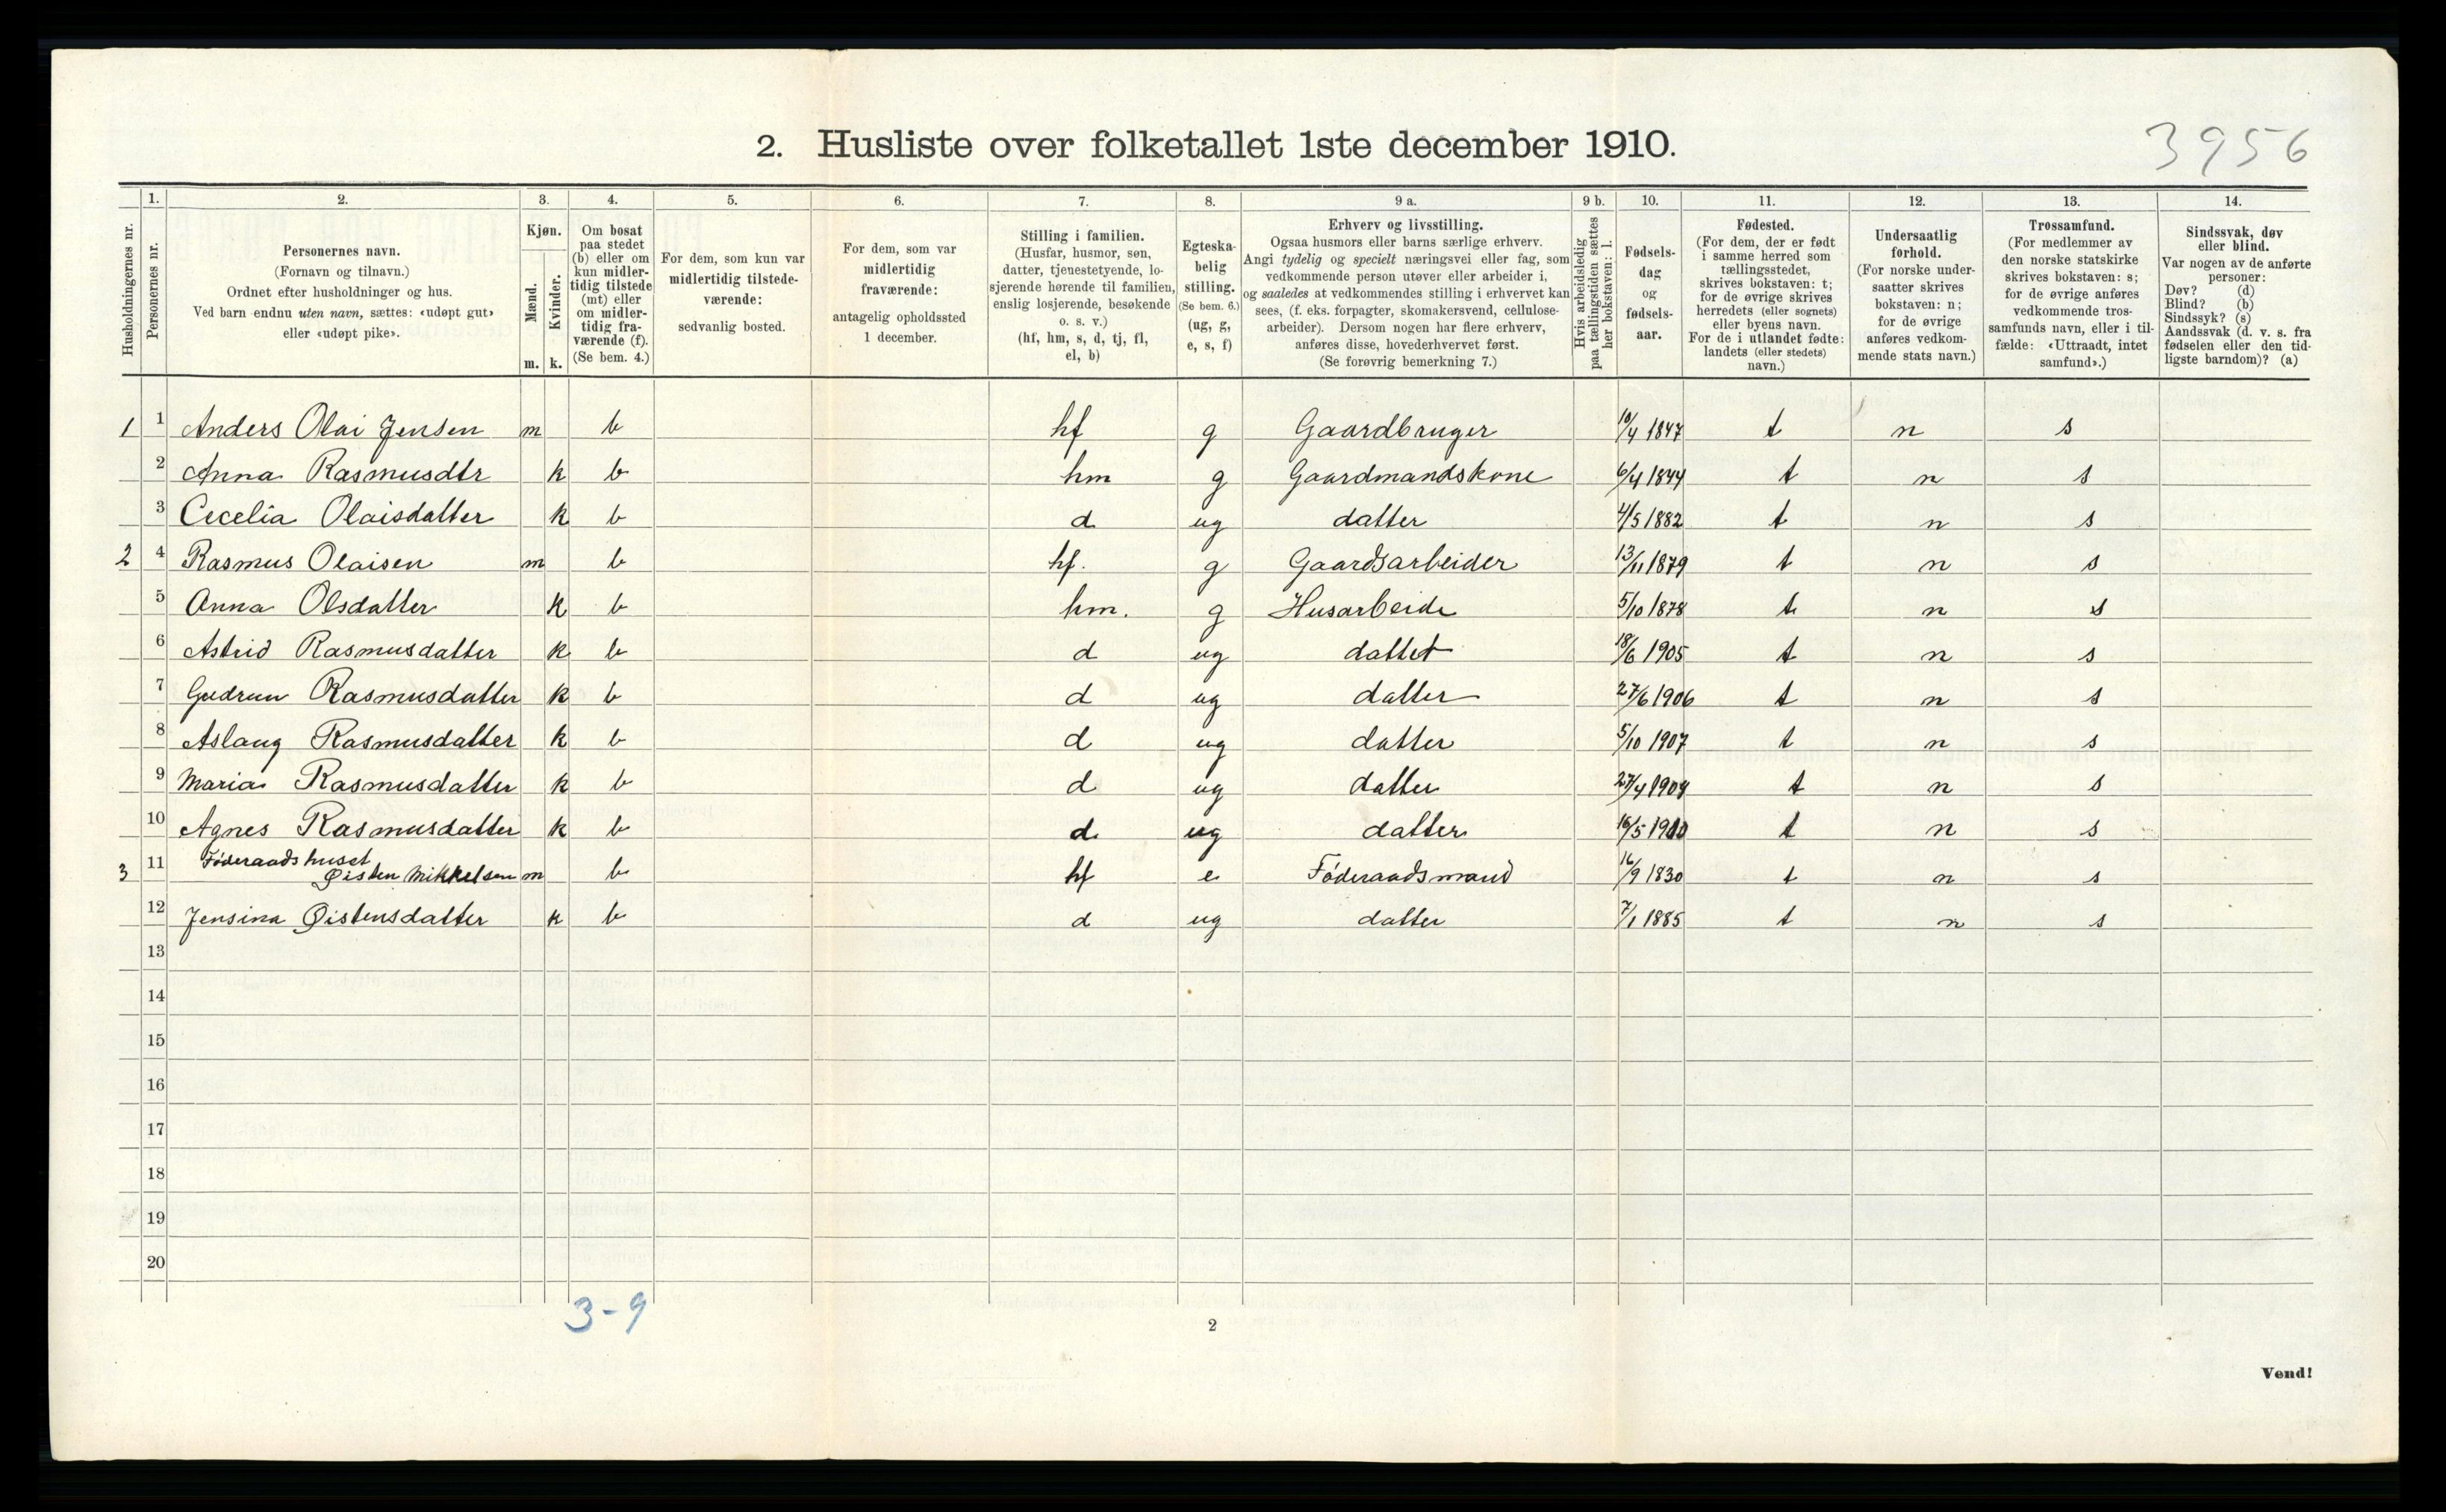 3956
2. Husliste over folketallet 1ste december 1910.
Husholdningernes nr.
1.
Personernes nr.
2.
Personernes navn.
(Fornavn og tilnavn.)
Ordnet efter husholdninger og hus.
Ved barn endnu uten navn, sættes: «udøpt gut»
eller «udøpt pike».
3.
Kjøn.
Mænd.
Kvinder.
m. k.
4.
Om bosat
paa stedet
(b) eller om
kun midler-
tidig tilstede
(mt) eller
om midler-
tidig fra-
værende (f).
(Se bem. 4.)
5.
For dem, som kun var
midlertidig tilstede-
værende:
sedvanlig bosted.
6.
For dem, som var
midlertidig
fraværende:
antagelig opholdssted
1 december.
7.
Stilling i familien.
(Husfar, husmor, søn,
datter, tjenestetyende, lo-
sjerende hørende til familien,
enslig losjerende, besøkende
o. s. v.)
(hf, hm, s, d, tj, fl,
el, b)
8.
Egteska-
belig
stilling.
(Se bem. 6.)
(ug, g,
e, s, f)
9 a.
Erhverv og livsstilling.
Ogsaa husmors eller barns særlige erhverv.
Angi tydelig og specielt næringsvei eller fag, som
vedkommende person utøver eller arbeider i,
og saaledes at vedkommendes stilling i erhvervet kan
sees, (f. eks. forpagter, skomakersvend, cellulose-
arbeider). Dersom nogen har flere erhverv,
anføres disse, hovederhvervet først.
(Se forøvrig bemerkning 7.)
9 b.
Hvis arbeidsledig
paa tællingstiden sættes
her bokstaven: l.
10.
Fødsels-
dag
og
fødsels-
aar.
11.
Fødested.
(For dem, der er født
i samme herred som
tællingsstedet,
skrives bokstaven: t;
for de øvrige skrives
herredets (eller sognets)
eller byens navn.
For de i utlandet fødte:
landets (eller stedets)
navn.)
12.
Undersaatlig
forhold.
(For norske under-
saatter skrives
bokstaven: n;
for de øvrige
anføres vedkom-
mende stats navn.)
13.
Trossamfund.
(For medlemmer av
den norske statskirke
skrives bokstaven: s;
for de øvrige anføres
vedkommende tros-
samfunds navn, eller i til-
fælde: «Uttraadt, intet
samfund».)
14.
Sindssvak, døv
eller blind.
Var nogen av de anførte
personer:
Døv? (d)
Blind? (b)
Sindssyk? (s)
Aandssvak (d. v. s. fra
fødselen eller den tid-
ligste barndom)? (a)
1 1 Anders Olai Jensen m b hf g Gaardbruger 10/4 1847 t n s
2 Anna Rasmusdtr k b hm g Gaardmandskone 6/4 1844 t n s
3 Cecelia Olaisdatter k b d ug datter 4/5 1882 t n s
2 4 Rasmus Olaisen m b hf. g Gaardsarbeider 13/11 1879 t n s
5 Anna Olsdatter k b hm. g Husarbeide 5/10 1878 t n s
6 Astrid Rasmusdatter k b d ug datter 18/6 1905 t n s
7 Gudrun Rasmusdatter k b d ug datter 27/6 1906 t n s
8 Aslaug Rasmusdatter k b d ug datter 5/10 1907 t n s
9 Maria Rasmusdatter k b d ug datter 27/4 1909 t n s
10 Agnes Rasmusdatter k b d. ug datter 16/5 1910 t n s
Føderaadshuset
3 11 Øisten Mikkelsen m b hf e Føderaadsmand 16/9 1830 t n s
12 Jensina Øistensdatter k b d ug datter 7/1 1885 t n s
13
14
15
16
17
18
19
20
3-9
2
Vend!